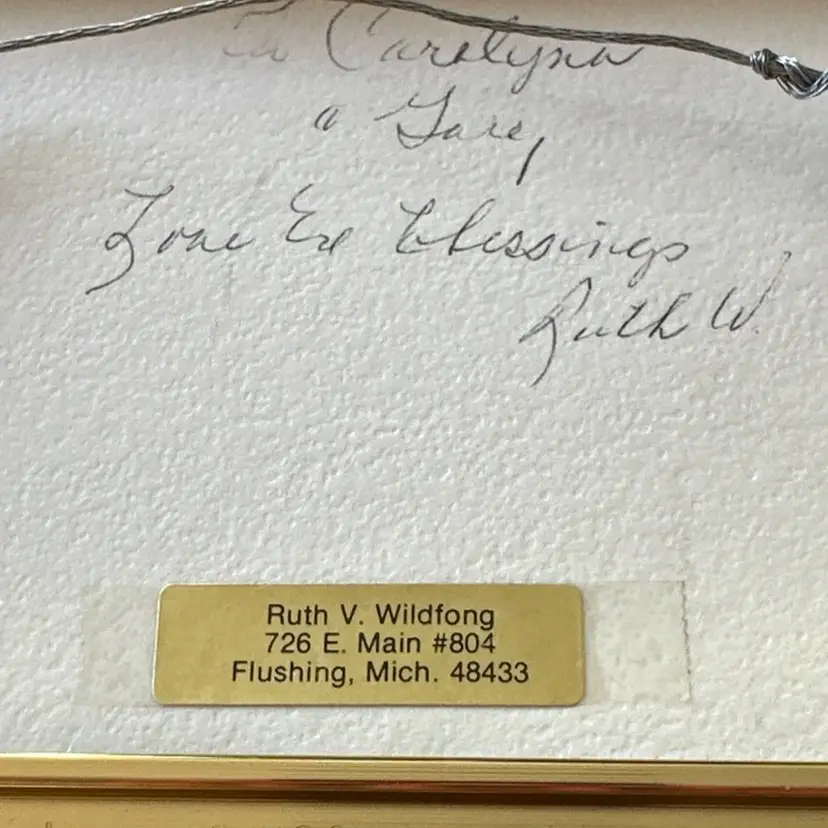 To Carolynn
a Gary,
Love & blessings
Ruth W.
Ruth V. Wildfong
726 E. Main #804
Flushing, Mich. 48433